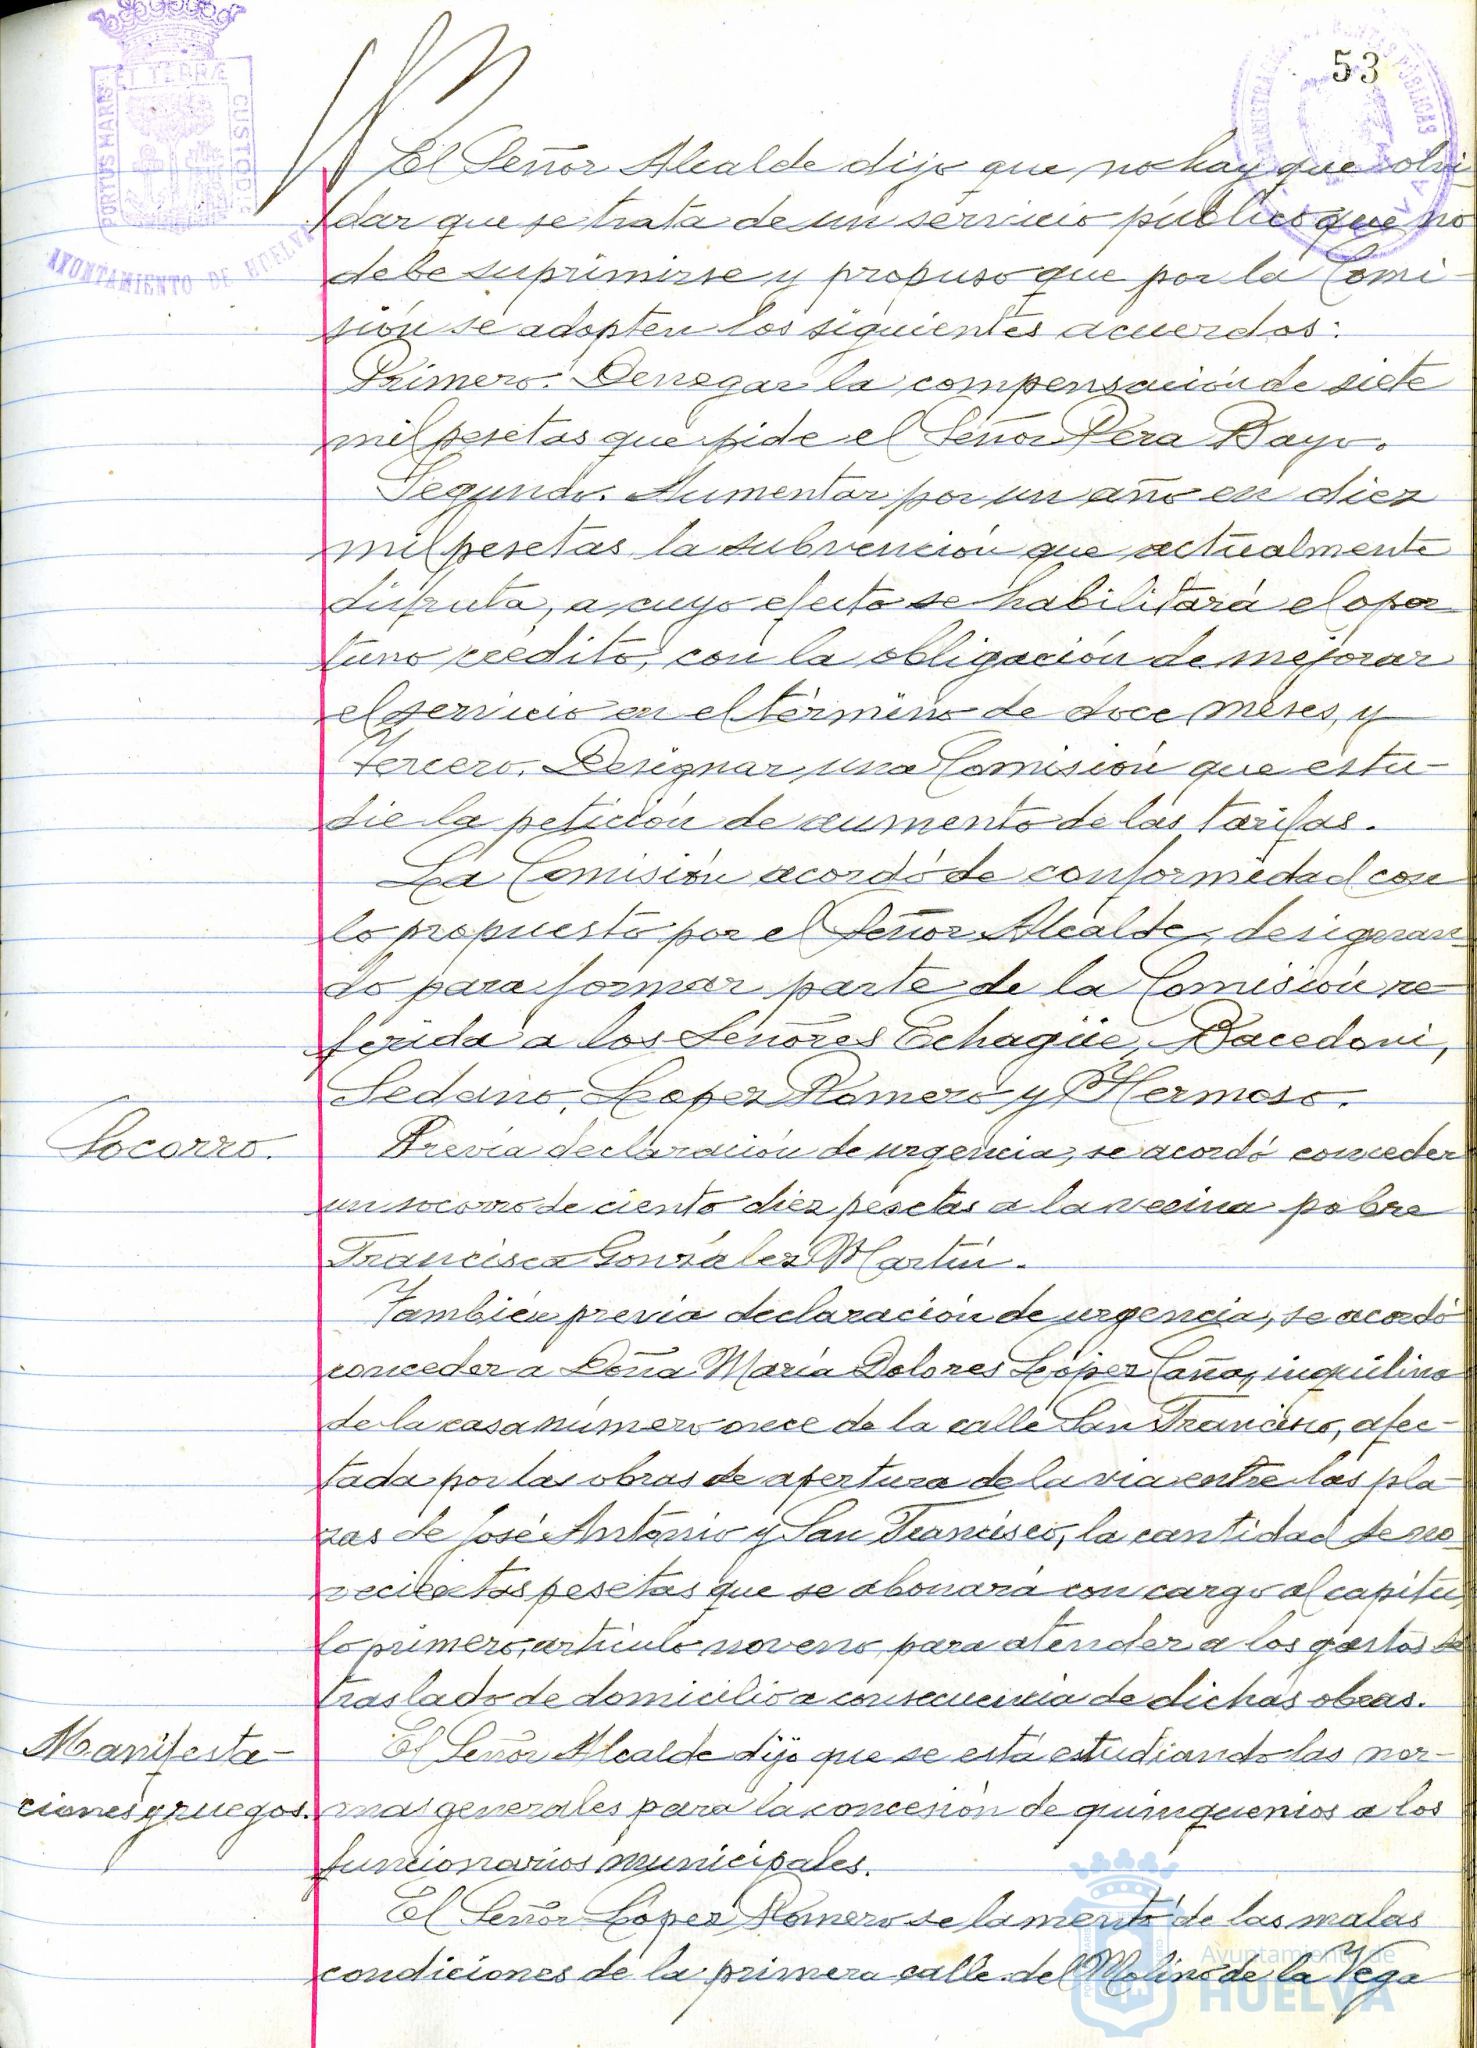 53
PORTUS MARIS ET TERRÆ CUSTODIA
AYUNTAMIENTO DE HUELVA
El Señor Alcalde dijo que no hay que olvi-
dar que se trata de un servicio público que no
debe suprimirse y propuso que por la Comi-
sión se adopten los siguientes acuerdos:
Primero. Denegar la compensación de siete
mil pesetas que pide el Señor Pera Bayo.
Segundo. Aumentar por un año en diez
mil pesetas la subvención que actualmente
disfruta, a cuyo efecto se habilitará el opor
tuno crédito, con la obligación de mejorar
el servicio en el término de doce meses, y
Tercero. Designar una Comisión que estu-
die la petición de aumento de las tarifas.
La Comisión acordó de conformidad con
lo propuesto por el Señor Alcalde, designan-
do para formar parte de la Comisión re-
ferida a los Señores Echagüe, Bacedoni,
Sedano, Lopez Romero y Hermoso.
Socorro.
Previa declaración de urgencia, se acordó conceder
un socorro de ciento diez pesetas a la vecina pobre
Francisca González Martín.
También previa declaración de urgencia, se acordó
conceder a Doña María Dolores López Caña, inquilina
de la casa número once de la calle San Francisco, afec-
tada por las obras de apertura de la via entre las pla-
zas de José Antonio y San Francisco, la cantidad de no-
vecientas pesetas que se abonará con cargo al capítu-
lo primero, artículo noveno, para atender a los gastos de
traslado de domicilio a consecuencia de dichas obras.
Manifesta-
ciones y ruegos.
El Señor Alcalde dijo que se está estudiando las nor-
mas generales para la concesión de quinquenios a los
funcionarios municipales.
El Señor López Romero se lamentó de las malas
condiciones de la primera calle del Molino de la Vega
Ayuntamiento de
HUELVA